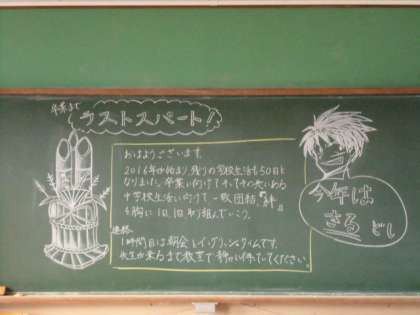 卒業まで
ラストスパート!
おはようございます。
2016年が始まり、残りの学校生活も50日と
なりました。卒業に向けて、そしてその先にある
中学校生活に向けて一致団結、『絆』
を胸に1日1日取り組んでいこう。
連絡
1時間目は朝会とイングリッシュタイムです。
先生が来るまで教室で静かに待っていてください。
今年は
さる
どし